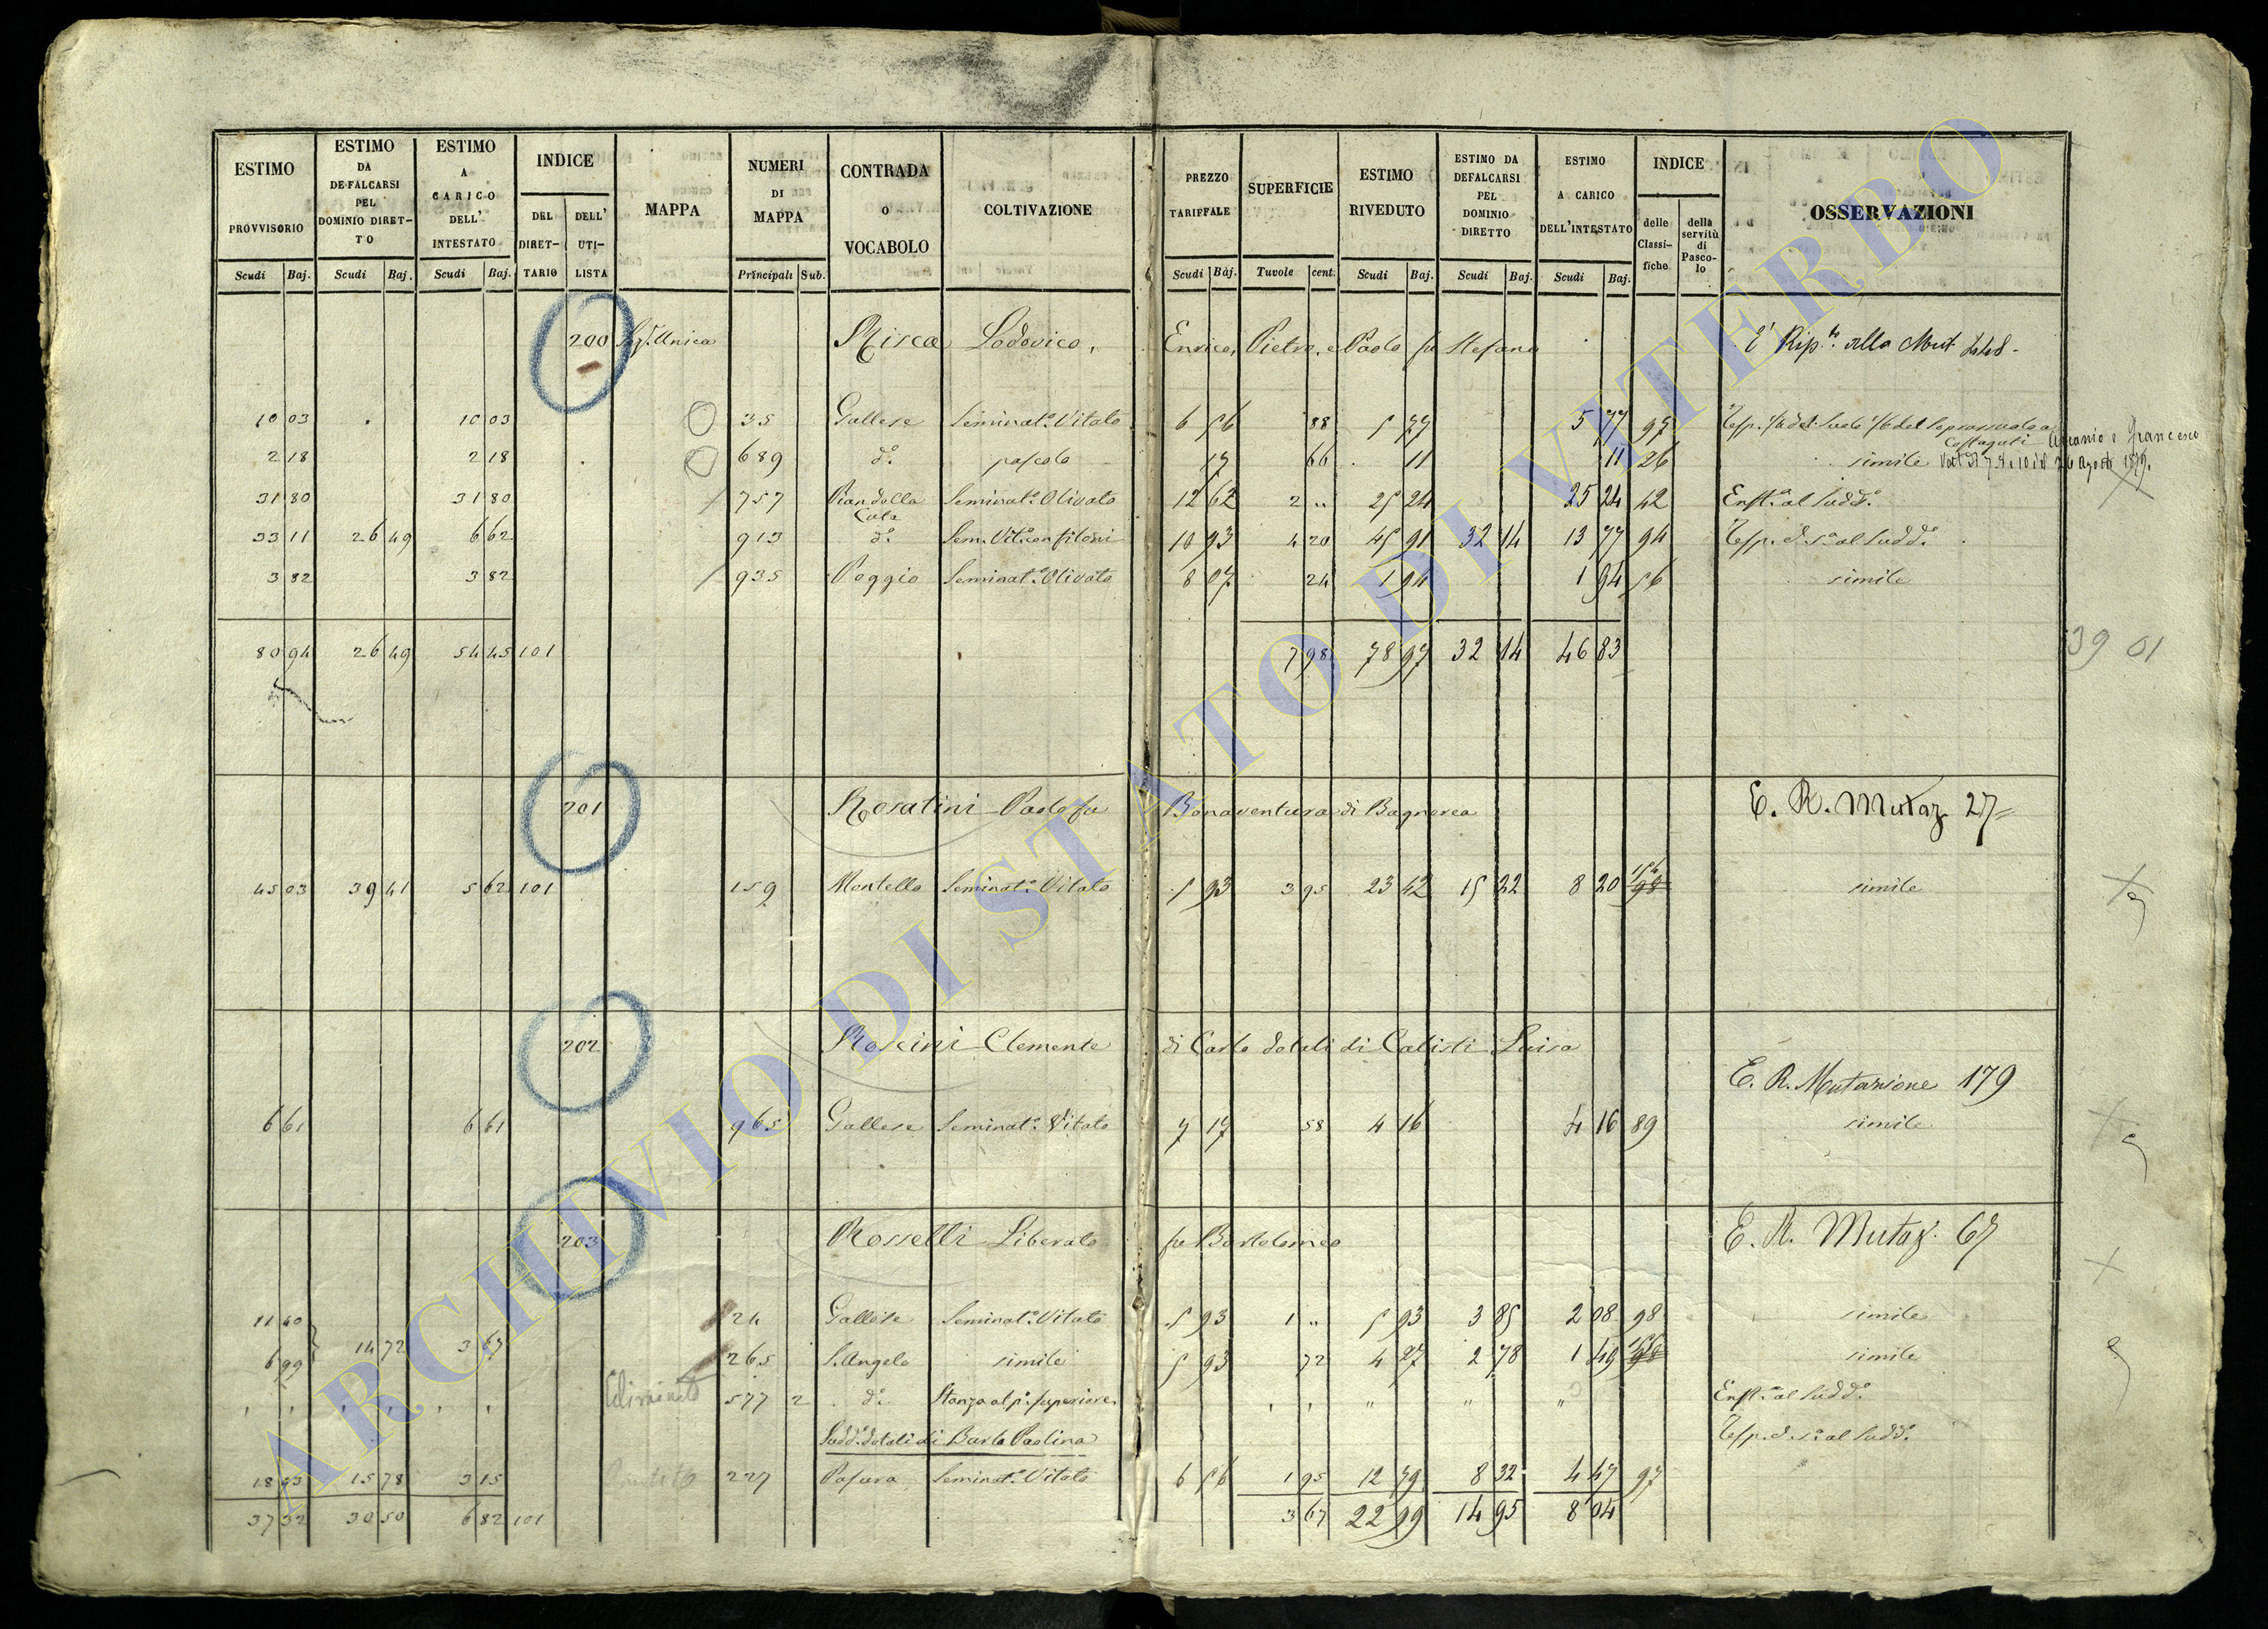 ESTIMO PROVVISORIO Scudi Baj.
ESTIMO DA DEFALCARSI PEL DOMINIO DIRET- TO Scudi Baj.
ESTIMO A CARICO DELL' INTESTATO Scudi Baj.
INDICE DEL DIRET- TARIO DELL' UTI- LISTA
MAPPA
NUMERI DI MAPPA Principali Sub.
CONTRADA O VOCABOLO
COLTIVAZIONE
PREZZO TARIFFALE Scudi Baj.
SUPERFICIE Tuvole cent.
ESTIMO RIVEDUTO Scudi Baj.
ESTIMO DA DEFALCARSI PEL DOMINIO DIRETTO Scudi Baj.
ESTIMO A CARICO DELL'INTESTATO Scudi Baj.
INDICE delle Classi- fiche della servitù di Pasco- lo
OSSERVAZIONI
200 Sez.e Unica Risca Lodovico, Enrico, Pietro, e Paolo fu Stefano E' Rip.to alla Mut
10 03 10 03 35 Gallese Seminat.o Vitato 6 56 88 5 77 5 77 97
2 18 2 18 689 d.o pascolo 17 66 11 11 26 simile
Ascanio e Francesco
31 80 31 80 757 Pian della Cala Seminat.o Olivato 12 62 2 " 25 24 25 24 42 Enft.o al Sudd.o
33 11 26 49 6 62 913 d.o Sem. Vit.o con filoni 10 93 4 20 45 91 32 14 13 77 94 Resp. d. s.a al Sudd.o
3 82 3 82 935 Poggio Seminat.o Olivato 8 07 24 1 94 1 94 56 simile
80 94 26 49 54 45 101 7 98 78 97 32 14 46 83
39 01
201 Rosatini Paolo fu Bonaventura di Bagnorea E. R. Mutaz 27
45 03 39 41 5 62 101 159 Montello Seminat.o Vitato 5 93 3 95 23 42 15 22 8 20 98 simile
202 Roscini Clemente di Carlo dotali di Calisti Luisa
E. R. Mutazione 179
6 61 6 61 965 Gallese Seminat.o Vitato 7 17 58 4 16 4 16 89 simile
203 Rosselli Liberato fu Bartolomeo E. R. Mutaz. 67
11 40 24 Gallese Seminat.o Vitato 5 93 1 " 5 93 3 85 2 08 98 simile
14 72 3 67
6 99 265 S. Angelo simile 5 93 72 4 27 2 78 1 49 98 simile
Eliminato 577 2 d.o Stanza al p.o superiore Enft.o al Sudd.o
Sudd.o dotali di Barlo Paolina Resp. d. s.a al Sudd.o
18 93 15 78 3 15 227 Pasura Seminat.o Vitato 6 56 1 95 12 79 8 32 4 47 97
37 32 30 50 6 82 101 3 67 22 99 14 95 8 04
ARCHIVIO DI STATO DI VITERBO